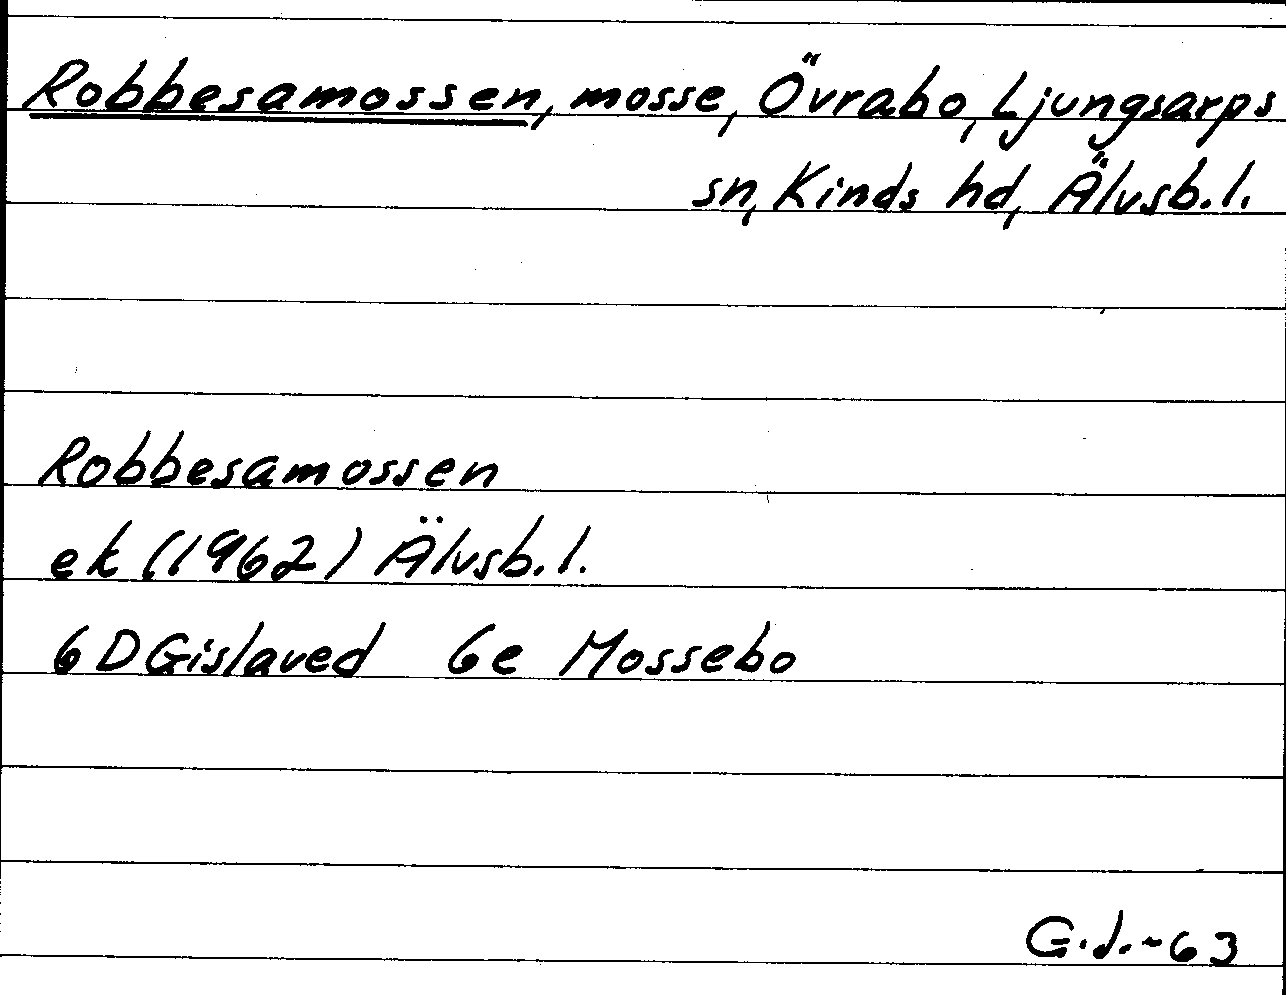 Robbesamossen, mosse, Övrabo, Ljungsarps
sn, Kinds hd, Älvsb.l.
Robbesamossen
ek (1962) Älvsb.l.
6D Gislaved 6e Mossebo
G.d.-63